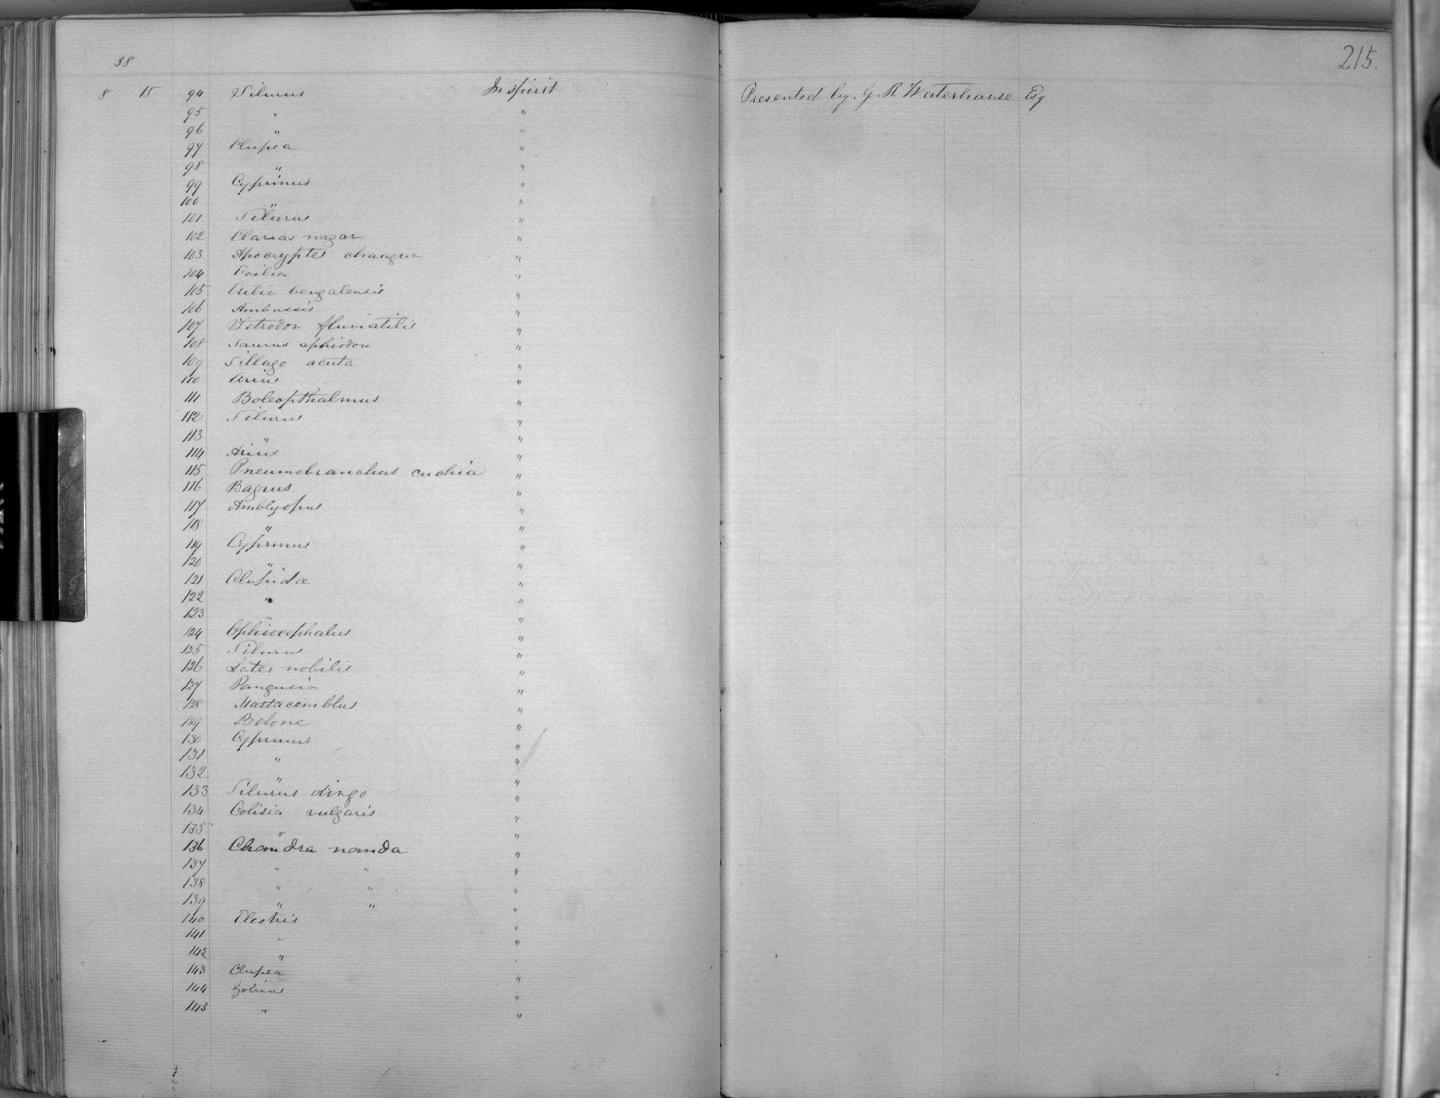 215.
58
8 15 94 Silurus In spirit Presented by G R Waterhouse Esq
95 " "
96 " "
97 Clupea "
98 " "
99 Cyprinus "
100 " "
101 Silurus "
102 Clarias magar "
103 Apocryptes changua "
104 Coilia "
105 bengalensis "
106 Ambassis "
107 Tetrodon fluviatilis "
108 Saurus ophiodon "
109 Sillago acuta "
110 Arius "
111 Boleopthalmus "
112 Silurus "
113 " "
114 Arius "
115 Pneumobranchus cuchia "
116 Bagrus "
117 Amblyopus "
118 " "
119 Cyprinus "
120 " "
121 Clupidæ "
122 " "
123 " "
124 Ophiocephalus "
125 Silurus "
126 Lates nobilis "
127 "
128 Mastacemblus "
129 Belone "
130 Cyprinus "
131 " "
132 " "
133 Silurus "
134 Colisia vulgaris "
135 " "
136 Chandra nanda "
137 " " "
138 " " "
139 " " "
140 Eleotris "
141 " "
142 "
143 Clupea "
144 Gobius "
145 " "